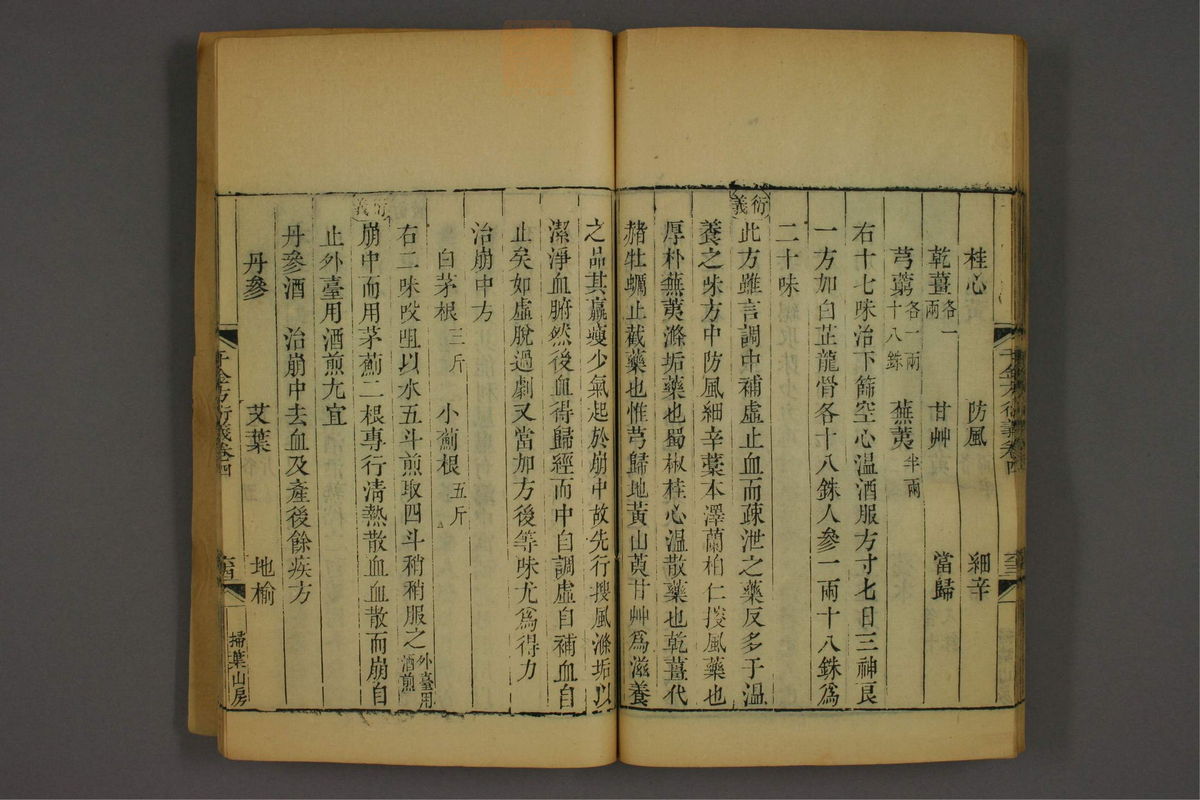 桂心　防風　細辛
乾薑各一兩　甘艸　當歸
芎藭各一兩十八銖　蕪荑半兩
右十七味治下篩空心温酒服方寸匕日三神良
一方加白芷龍骨各十八銖人參一兩十八銖爲
二十味
衍義
此方雖言調中補虛止血而疎泄之藥反多于温
養之味方中防風細辛藁本澤蘭柏仁搜風藥也
厚朴蕪荑滌垢藥也蜀椒桂心温散藥也乾薑代
赭牡蠣止截藥也惟芎歸地黃山萸甘艸爲滋養
千金方衍義卷四
之品其羸瘦少氣起於崩中故先行搜風滌垢以
潔淨血腑然後血得歸經而中自調虛自補血自
止矣如虛脫過劇又當加方後等味尤爲得力
治崩中方
白茅根三斤　小薊根五斤
右二味㕮咀以水五斗煎取四斗稍稍服之外臺用酒煎
衍義
崩中而用茅薊二根專行淸熱散血血散而崩自
止外臺用酒煎尤宜
丹參酒　治崩中去血及產後餘疾方
丹參　艾葉　地榆
千金方衍義卷四
掃葉山房